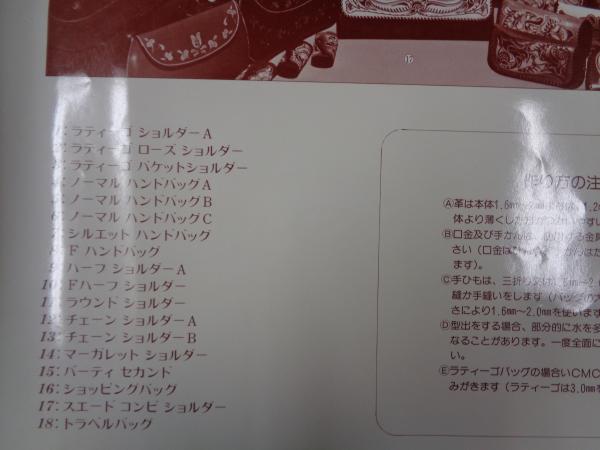 17
1: ラティーゴ ショルダーA
2: ラティーゴ ローズ ショルダー
3: ラティーゴ パケットショルダー
4: ノーマル ハンドバッグA
5: ノーマル ハンドバッグB
6: ノーマル ハンドバッグC
7: シルエット ハンドバッグ
8: F ハンドバッグ
9: ハーフ ショルダーA
10: Fハーフ ショルダー
11: ラウンド ショルダー
12: チェーン ショルダーA
13: チェーン ショルダーB
14: マーガレット ショルダー
15: パーティ セカンド
16: ショッピングバッグ
17: スエード コンビ ショルダー
18: トラベルバッグ
作り方の注
Ⓐ革は本体1.6mm
体より薄くした方が
Ⓑ口金及び手かんは、
さい（口金は
ます）。
Ⓒ手ひもは、三折り又は
縫か手縫いをします（バッグの大
さにより1.6mm〜2.0mmを使います
Ⓓ型出をする場合、部分的に水を多
なることがあります。一度全面に
い。
Ⓔラティーゴバッグの場合いCMC
みがきます（ラティーゴは3.0mmを